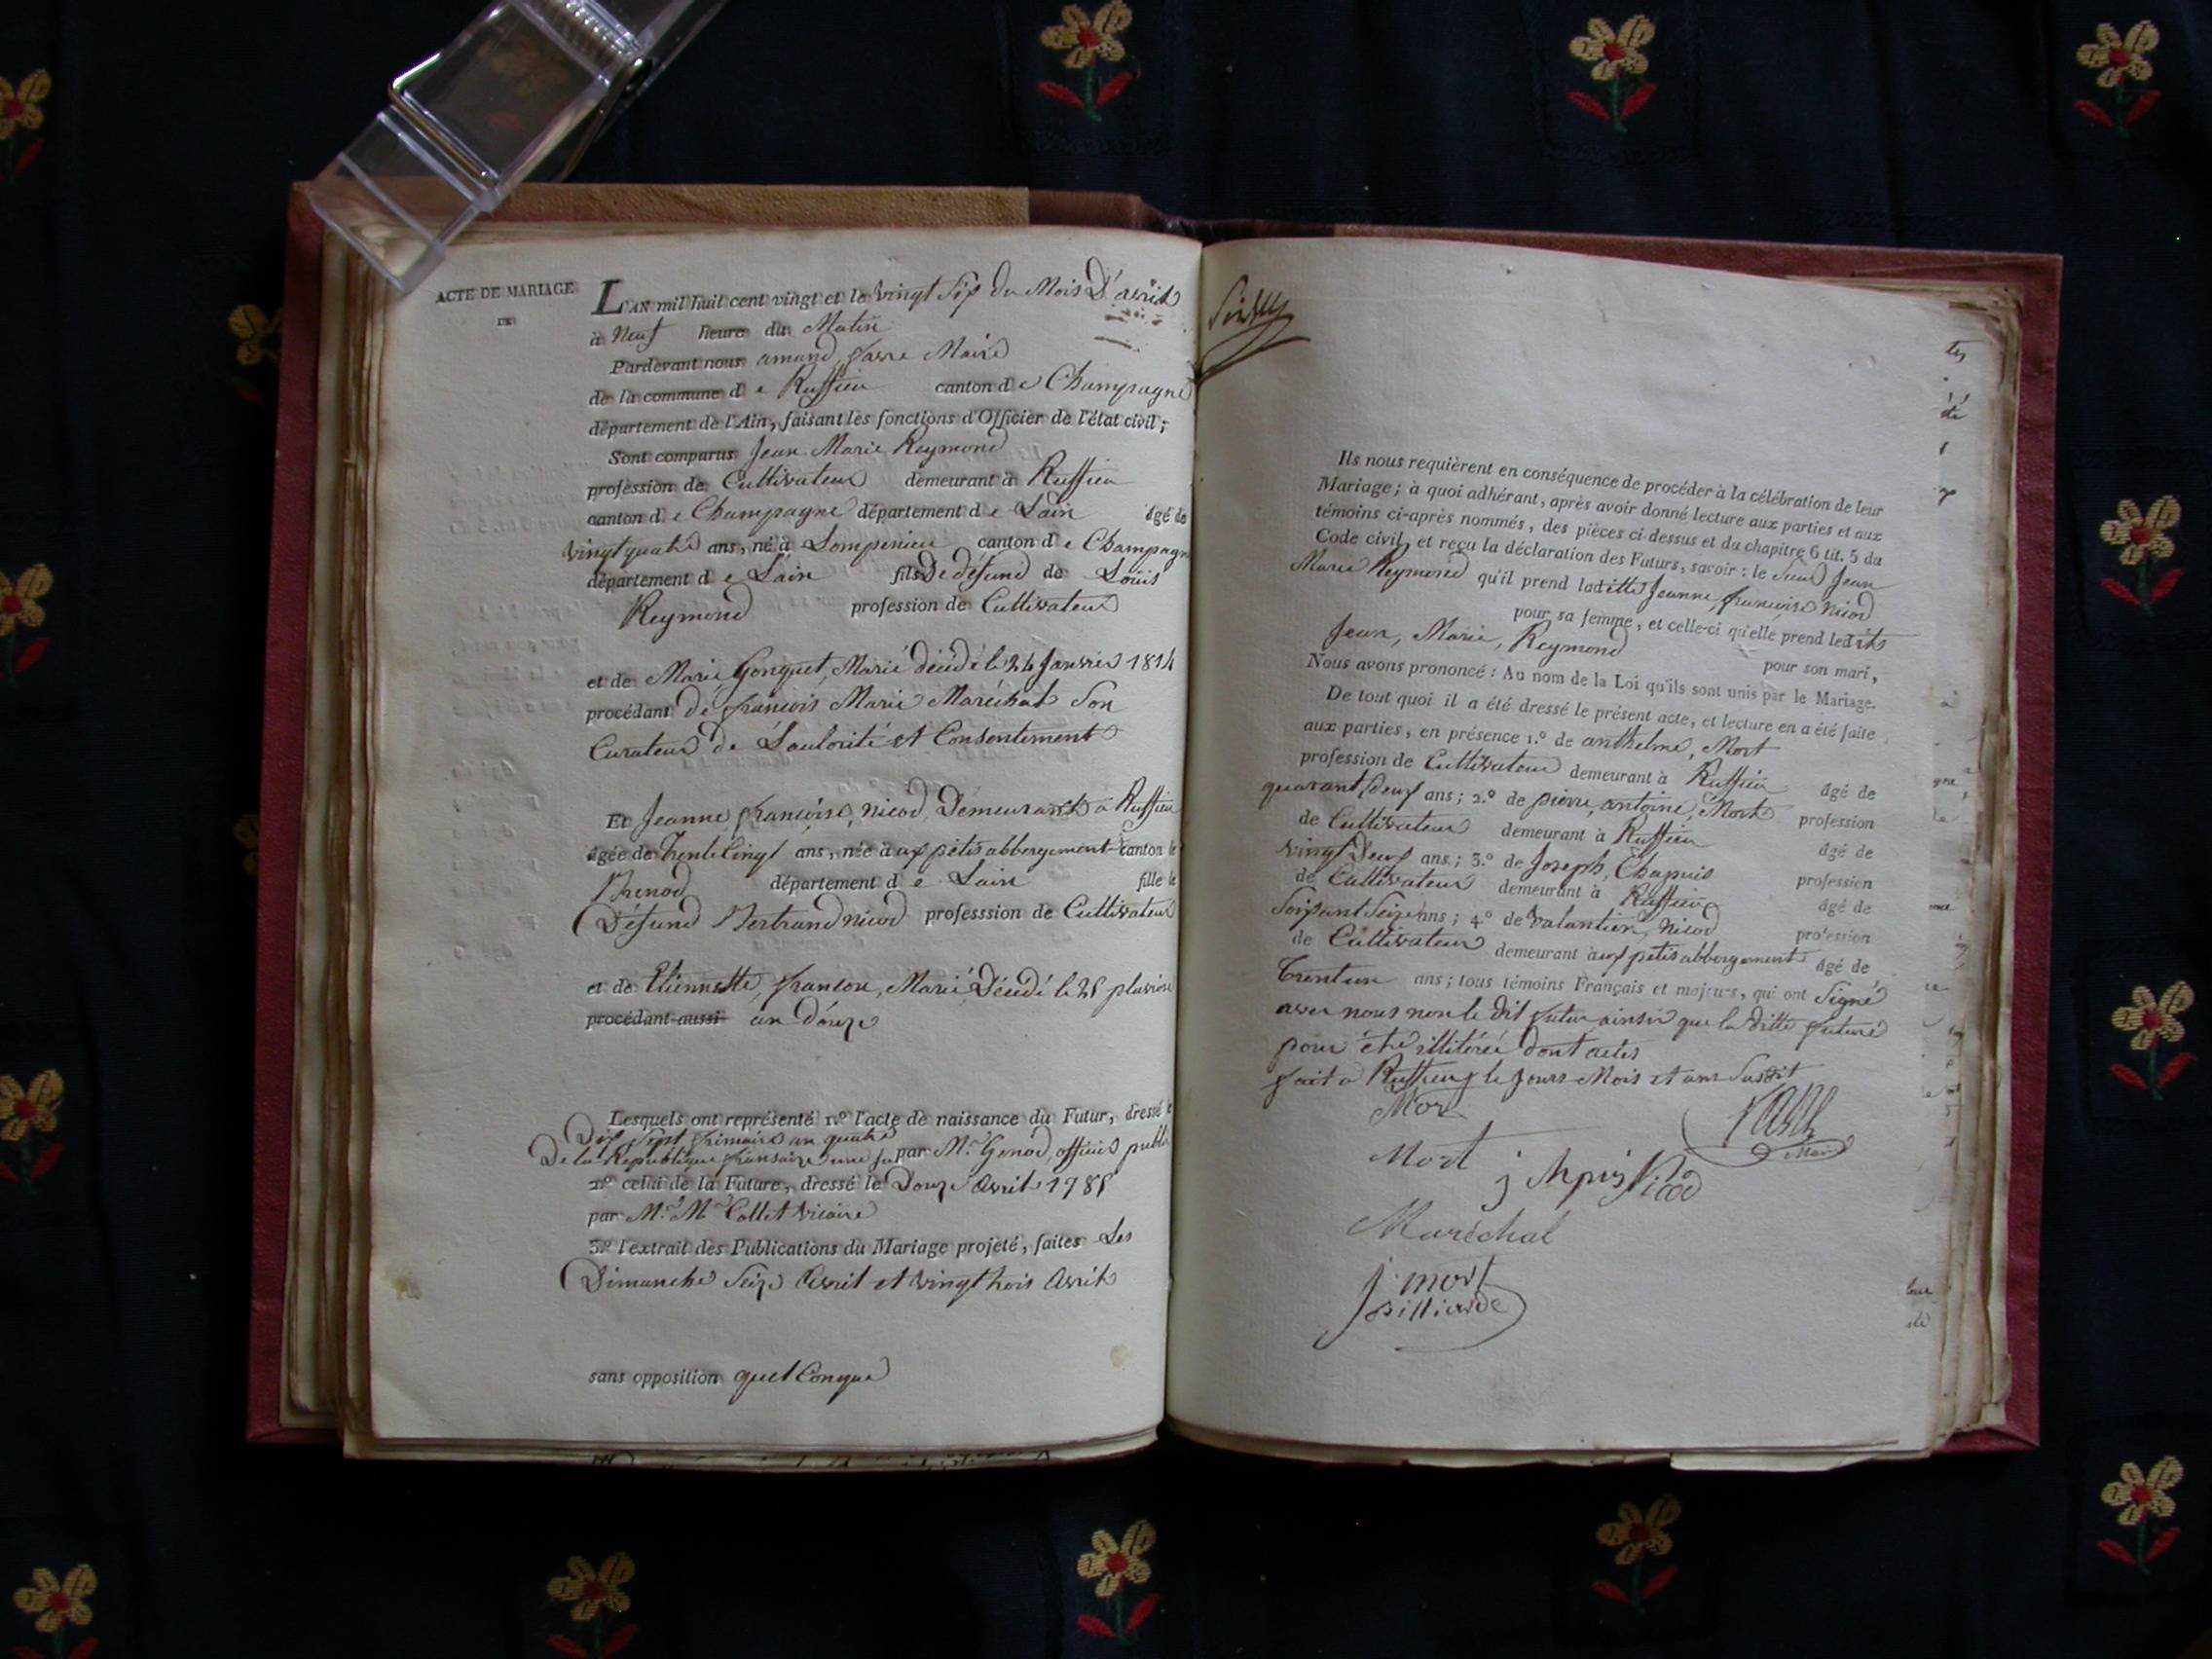 ACTE DE MARIAGE
DE
L'AN mil huit cent vingt et le vingt Six du Mois D'avril
à Neuf heure du Matin
Pardevant nous amand, favre Maire
de la commune d e Ruffieu canton d e Champagne
département de l'Ain, faisant les fonctions d'Officier de l'état civil;
Sont comparus Jean Marie Reymond
profession de Cultivateur demeurant à Ruffieu
canton d e Champagne département d e Lain âgé de
vingt quatre ans, né à Lompenieu canton d e Champagne
département d e Lain fils De défund de Louis
Reymond profession de Cultivateur
et de Marie Gonguet, Marié décédé le 24 Janvier 1814
procédant de françois Marie Maréchal Son
Curateur de Lautorité et Consentement
Et Jeanne françoise, nicod, Demeurant à Ruffieu
âgée de Trente Cinq ans, née à aux petis abbergement canton de
Brenod département d e Lain fille de
Défund Bertrand nicod professsion de Cultivateur
et de Etiennette, françon, Marié, Décédé le 25 pluviose
procédant aussi an Douze
Lesquels ont représenté 1.º l'acte de naissance du Futur, dressé le
Dix Sept frimaire an quatre
De la Republique par M.r Genod, officier publi
2.º celui de la Future, dressé le Douze Avril 1785
par M.r Mr Collet vicaire
3.º l'extrait des Publications du Mariage projeté, faites Les
Dimanche Seize Avril et vingt trois Avril
sans opposition quelConque
Ils nous requièrent en conséquence de procéder à la célébration de leur
Mariage; à quoi adhérant, après avoir donné lecture aux parties et aux
témoins ci-après nommés, des pièces ci-dessus et du chapitre 6 tit. 5 du
Code civil, et reçu la déclaration des Futurs, savoir: le Sieur Jean
Marie Reymond qu'il prend laditte Jeanne, françoise nicod
pour sa femme, et celle-ci qu'elle prend ledit
Jean, Marie, Reymond pour son mari,
Nous avons prononcé: Au nom de la Loi qu'ils sont unis par le Mariage.
De tout quoi il a été dressé le présent acte, et lecture en a été faite
aux parties, en présence 1.º de anthelme, Mort
profession de Cultivateur demeurant à Ruffieu âgé de
quarant deux ans; 2.º de pierre, antoine, Mort profession
de Cultivateur demeurant à Ruffieu âgé de
vingt Deux ans; 3.º de Joseph, Chapuis profession
de Cultivateur demeurant à Ruffieu âgé de
Soixant Seize ans; 4.º de valantin, nicod profession
de Cultivateur demeurant à aux petis abbergement âgé de
Trentun ans; tous témoins Français et majeurs, qui ont Signé
avec nous non le dit futur ainsi que la ditte future
pour être illitérée dont actes
fait a Ruffieu le Jours Mois et ans Susdit
Mort
Mort
Nicod
Maire
Maréchal
j. mort